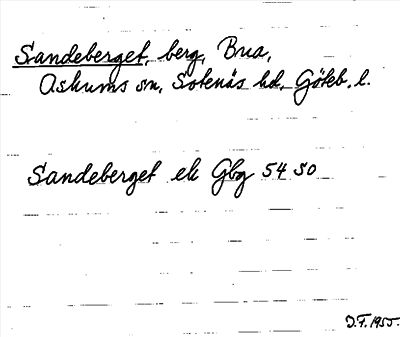 Sandeberget, berg, Bua,
Askums sn, Sotenäs hd, Göteb. l.
Sandeberget ek Gbg 54 SO
J.F. 1955.